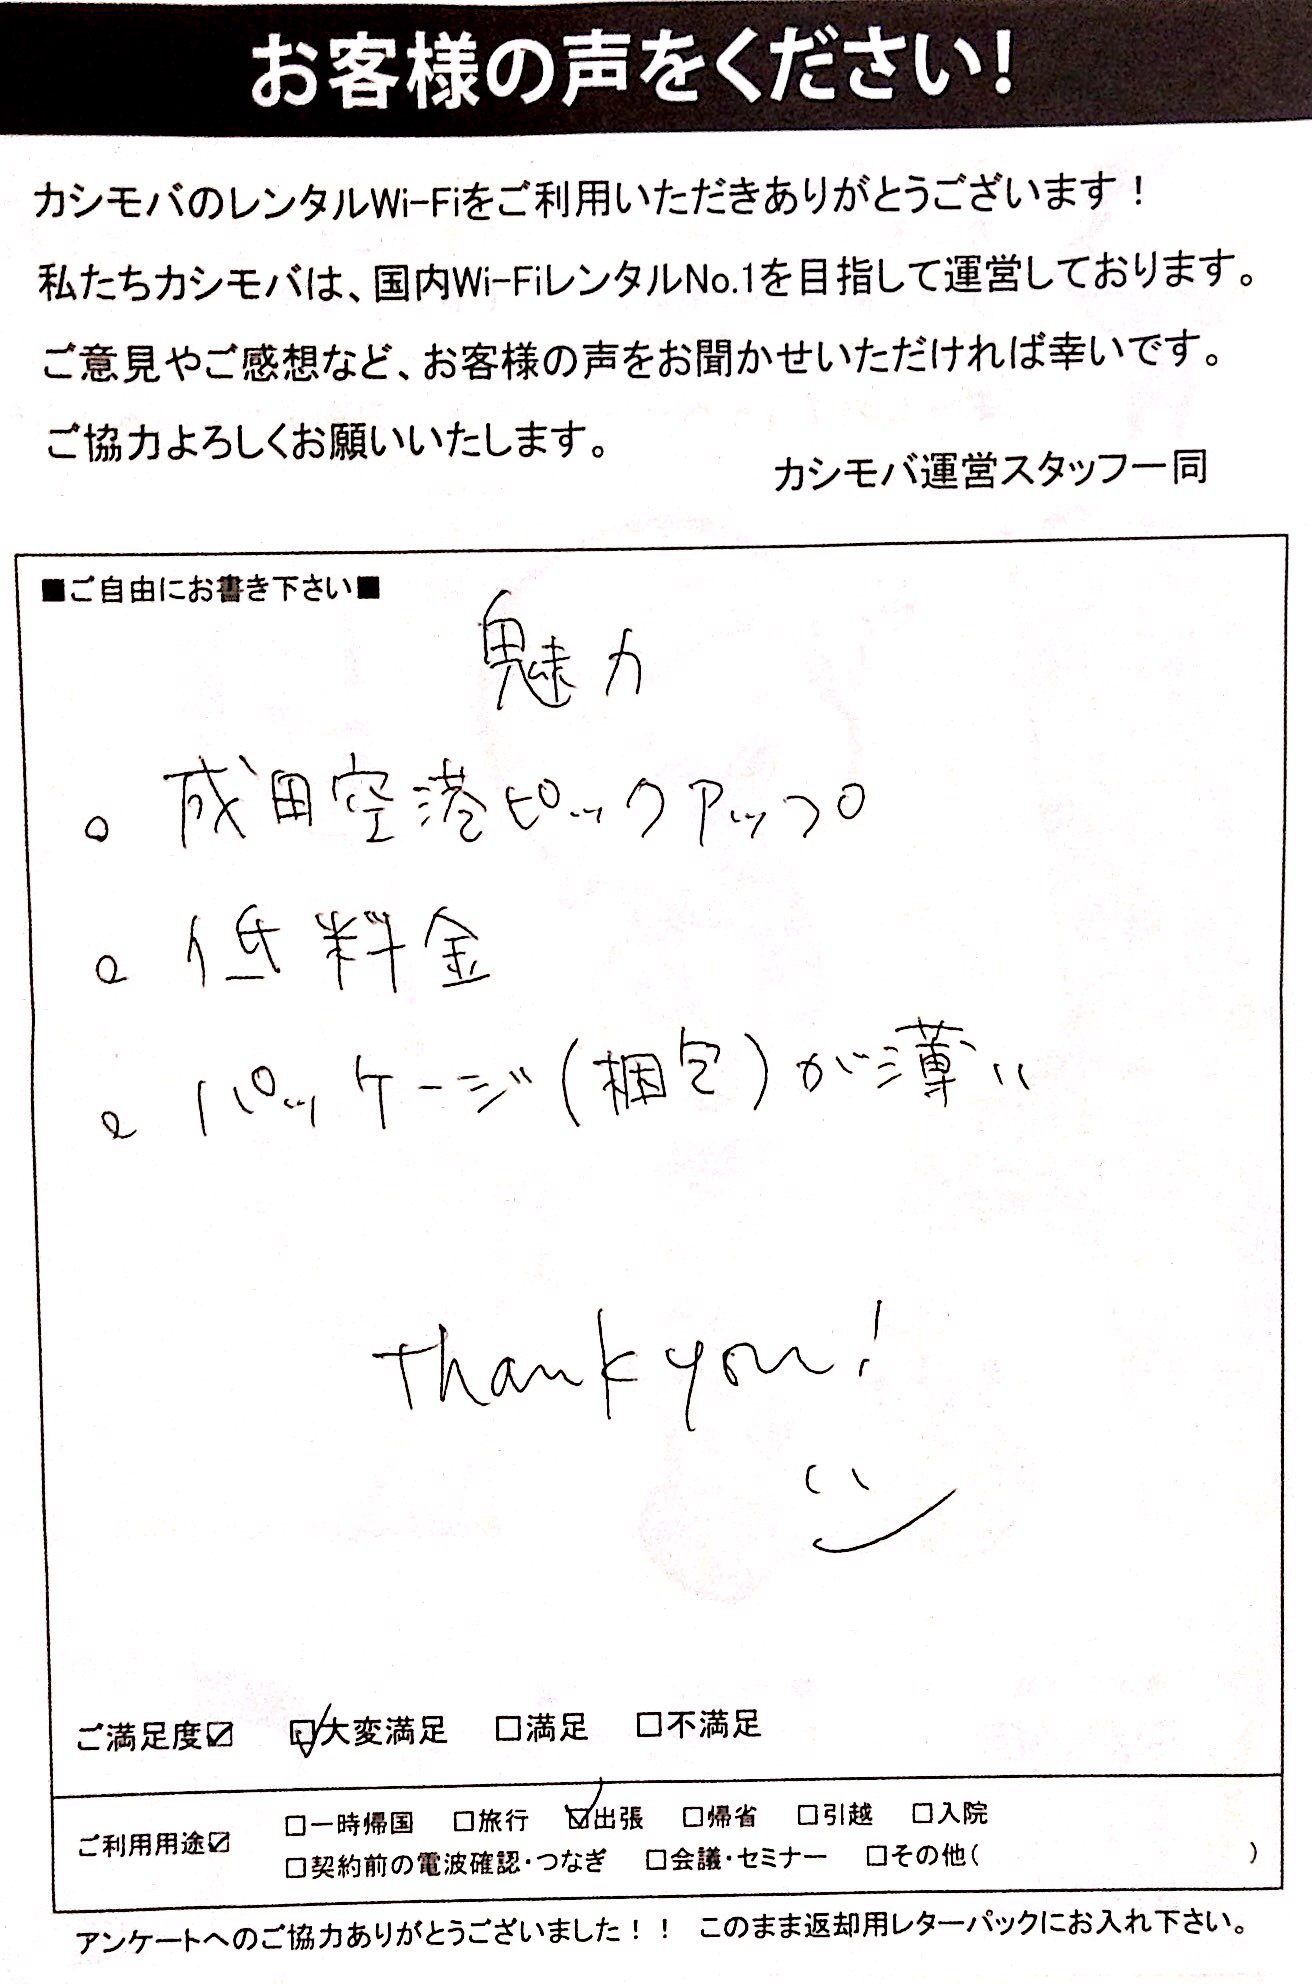 お客様の声をください!
カシモバのレンタルWi-Fiをご利用いただきありがとうございます！
私たちカシモバは、国内Wi-FiレンタルNo.1を目指して運営しております。
ご意見やご感想など、お客様の声をお聞かせいただければ幸いです。
ご協力よろしくお願いいたします。
カシモバ運営スタッフ一同
■ご自由にお書き下さい■
魅力
。成田空港ピックアップ
。低料金
。パッケージ(梱包)が薄い
thank you!
ご満足度☑ ☑大変満足 □満足 □不満足
ご利用用途☑ □一時帰国 □旅行 ☑出張 □帰省 □引越 □入院
□契約前の電波確認・つなぎ □会議・セミナー □その他( )
アンケートへのご協力ありがとうございました！！ このまま返却用レターパックにお入れ下さい。